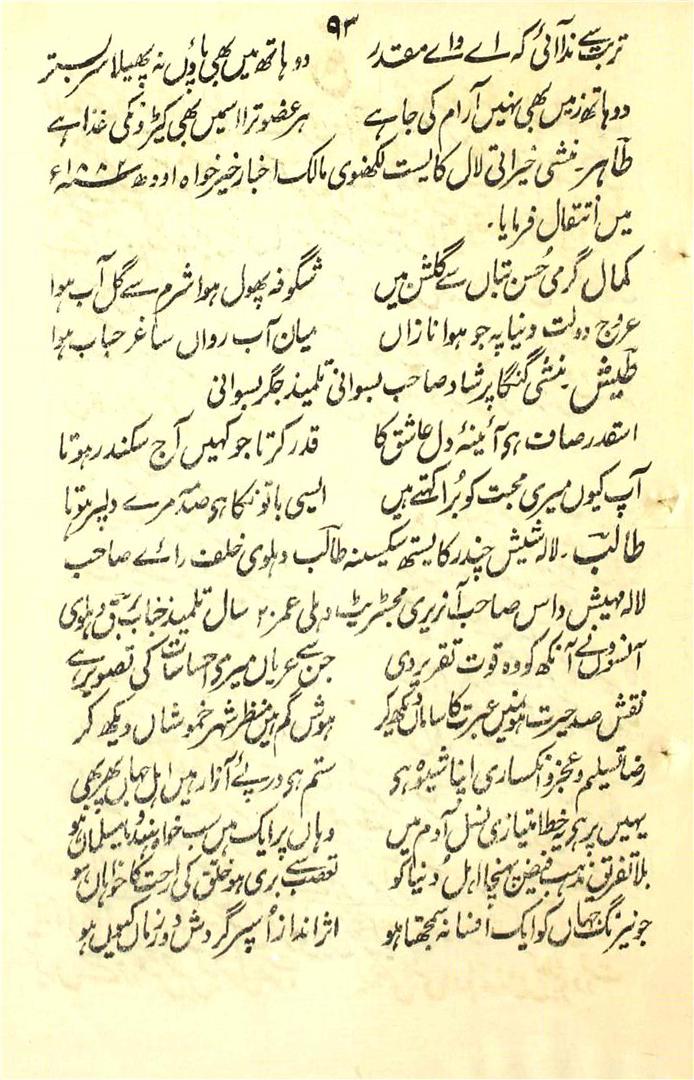 ۹۳
تربت سے ندا آئی کہ اے واے مقدر دو ہاتھ میں بھی پاؤں نہ پھیلا سر بستر
دو ہاتھ زمیں بھی نہیں آرام کی جا ہے ہر عضو ترا اسمیں بھی کیڑونکی غذا ہے
طاہر۔ منشی خیراتی لال کایست لکھنوی مالک اخبار خیر خواہ اودھ سنہ ۱۸۸۲ء
میں انتقال فرمایا۔
کمال گرمی حُسن بتاں سے گلشن میں شگوفہ پھول ہوا شرم سے گل آب ہوا
عروج دولت دنیا پہ جو ہوا نازاں میان آب رواں ساغر حباب ہوا
طیش۔ منشی گنگا پرشاد صاحب بسوانی تلمیذ جگر بسوانی
اسقدر صاف ہو آئینۂ دل عاشق کا قدر کرتا جو کہیں آج سکندر ہوتا
آپ کیوں میری محبت کو بُرا کہتے ہیں ایسی باتونکا ہو صدمہ مرے دلپر ہوتا
طالب۔ لالہ شیش چندر کایستھ سکسینہ طالب دہلوی خلف رائے صاحب
لالہ مہیش داس صاحب آنریری مجسٹریٹ دہلی عمر ۲۰ سال تلمیذ جناب دہلوی
آنسوؤں نے آنکھ کو وہ قوت تقریر دی جن سے عریاں میری احساسات کی تصویر ہے
نقش صد حیرت ہوں میں عبرت کا ساماں دیکھ کر ہوش گم ہیں منظر شہر خموشاں دیکھ کر
رضا تسلیم و عجز و انکساری اپنا شیوہ ہو ستم ہو درپئے آزار ہیں اہل جہاں پھر بھی
یہیں پر ہو یہ خط امتیازی نسل آدم میں وہاں پر ایک ہیں سب خواہ ہندو یا مسلماں ہو
بلا تفریق مذہب فیض پہنچا اہل دنیا کو تعصب سے بری ہو خلق کی راحت کا خواہاں ہو
جو نیرنگ جہاں کو ایک افسانہ سمجھتا ہو اثر انداز اُسپر گردش دور زماں کیوں ہو